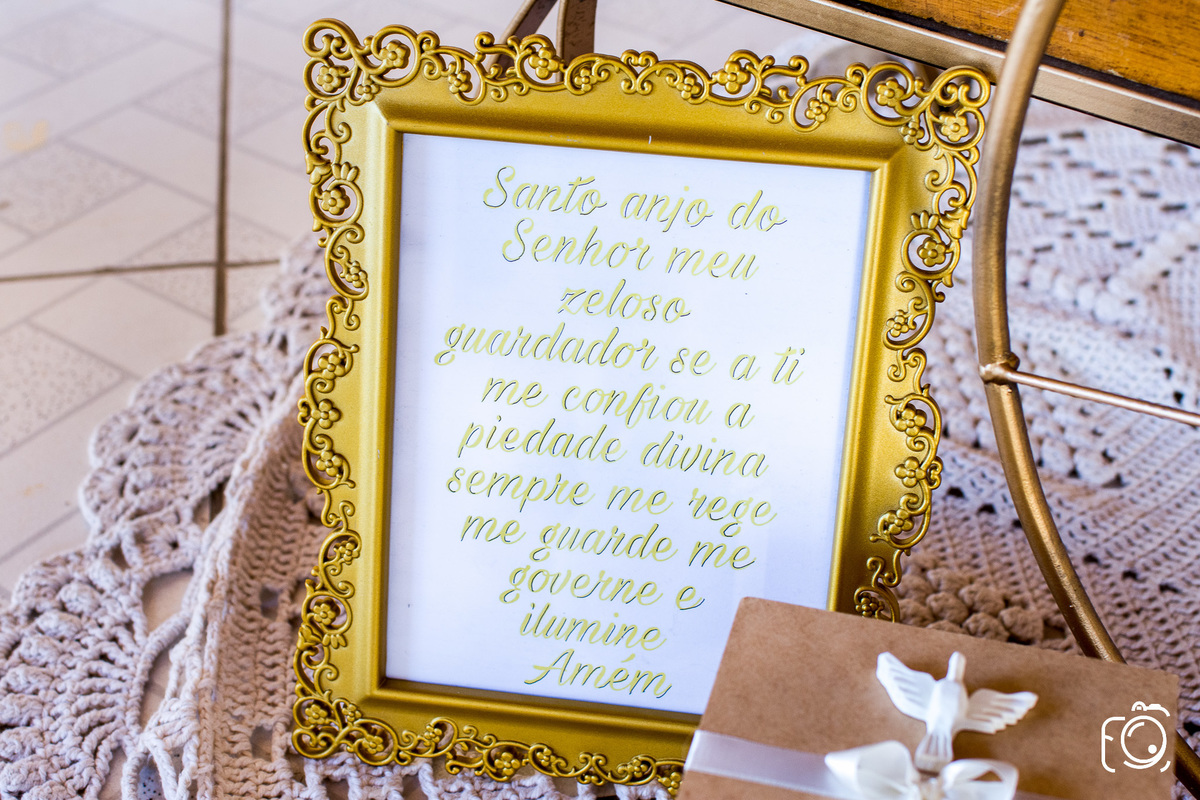 Santo anjo do
Senhor meu
zeloso
guardador se a ti
me confiou a
piedade divina
sempre me rege
me guarde me
governe e
ilumine
Amém